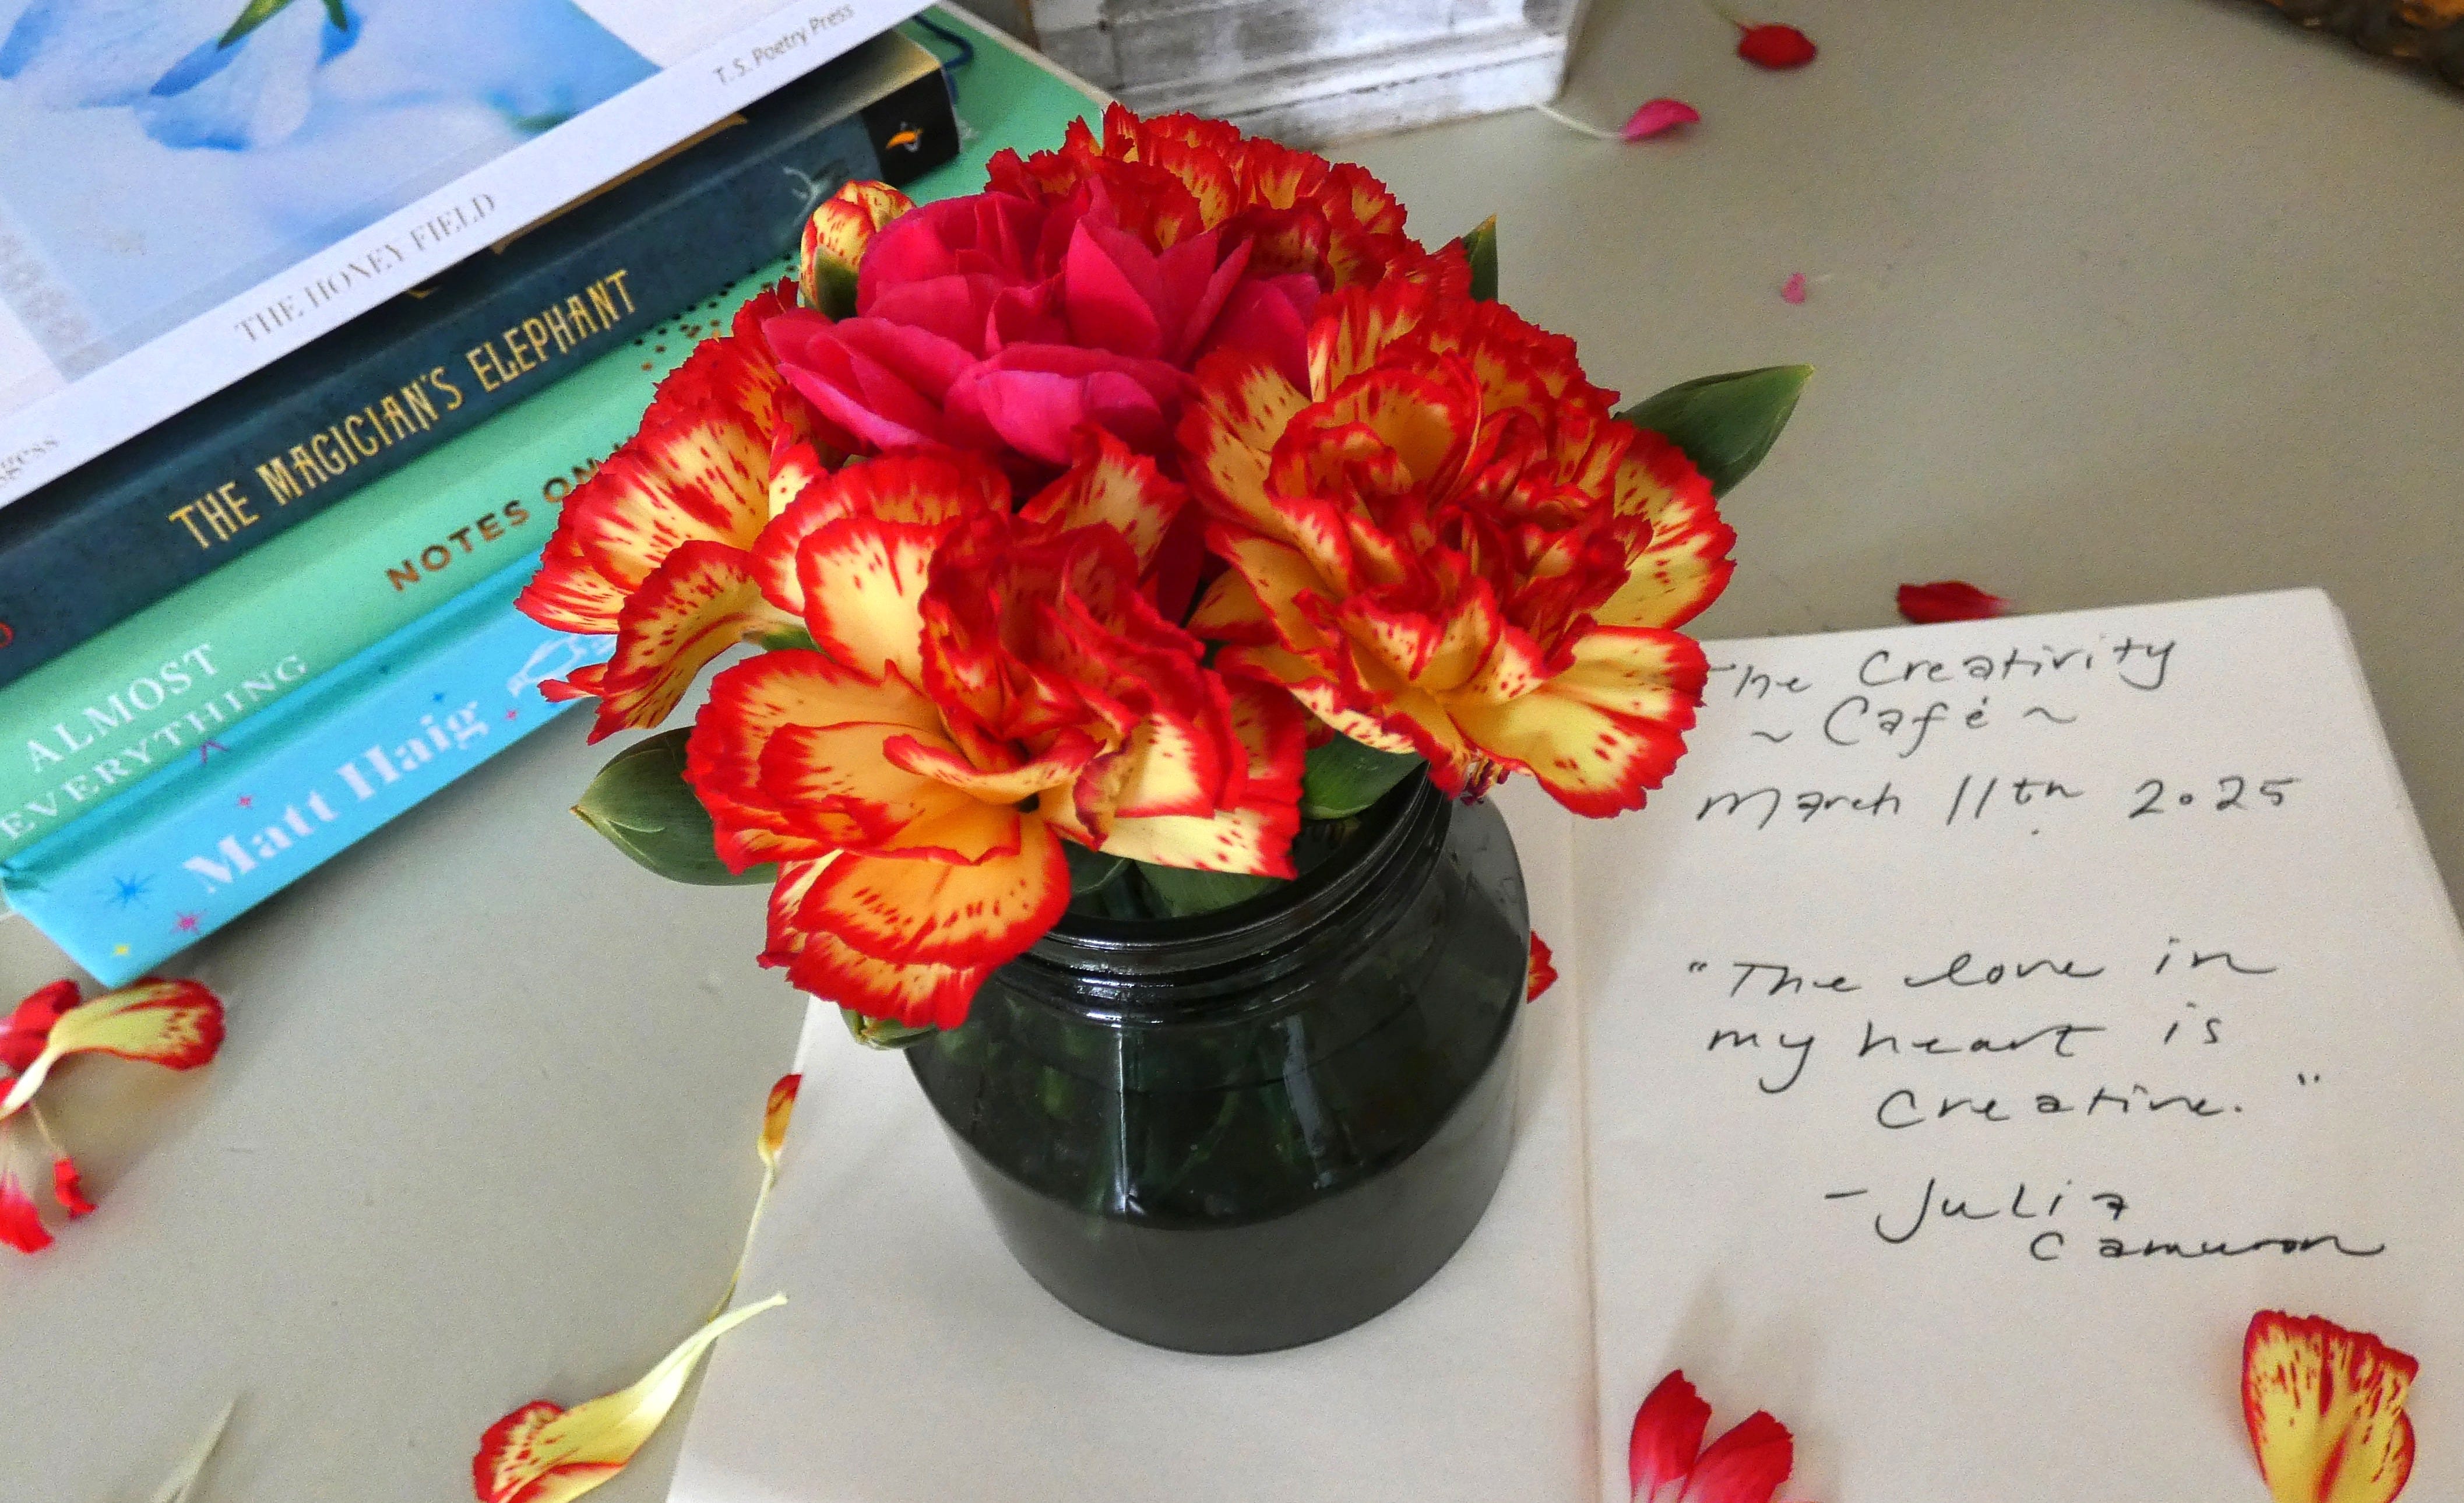 T. S. Poetry Press
THE HONEY FIELD
THE MAGICIAN'S ELEPHANT
NOTES ON
ALMOST
EVERYTHING
Matt Haig
The Creativity
~ Café ~
March 11th 2025
"The love in
my heart is
Creative."
- Julia
Cameron